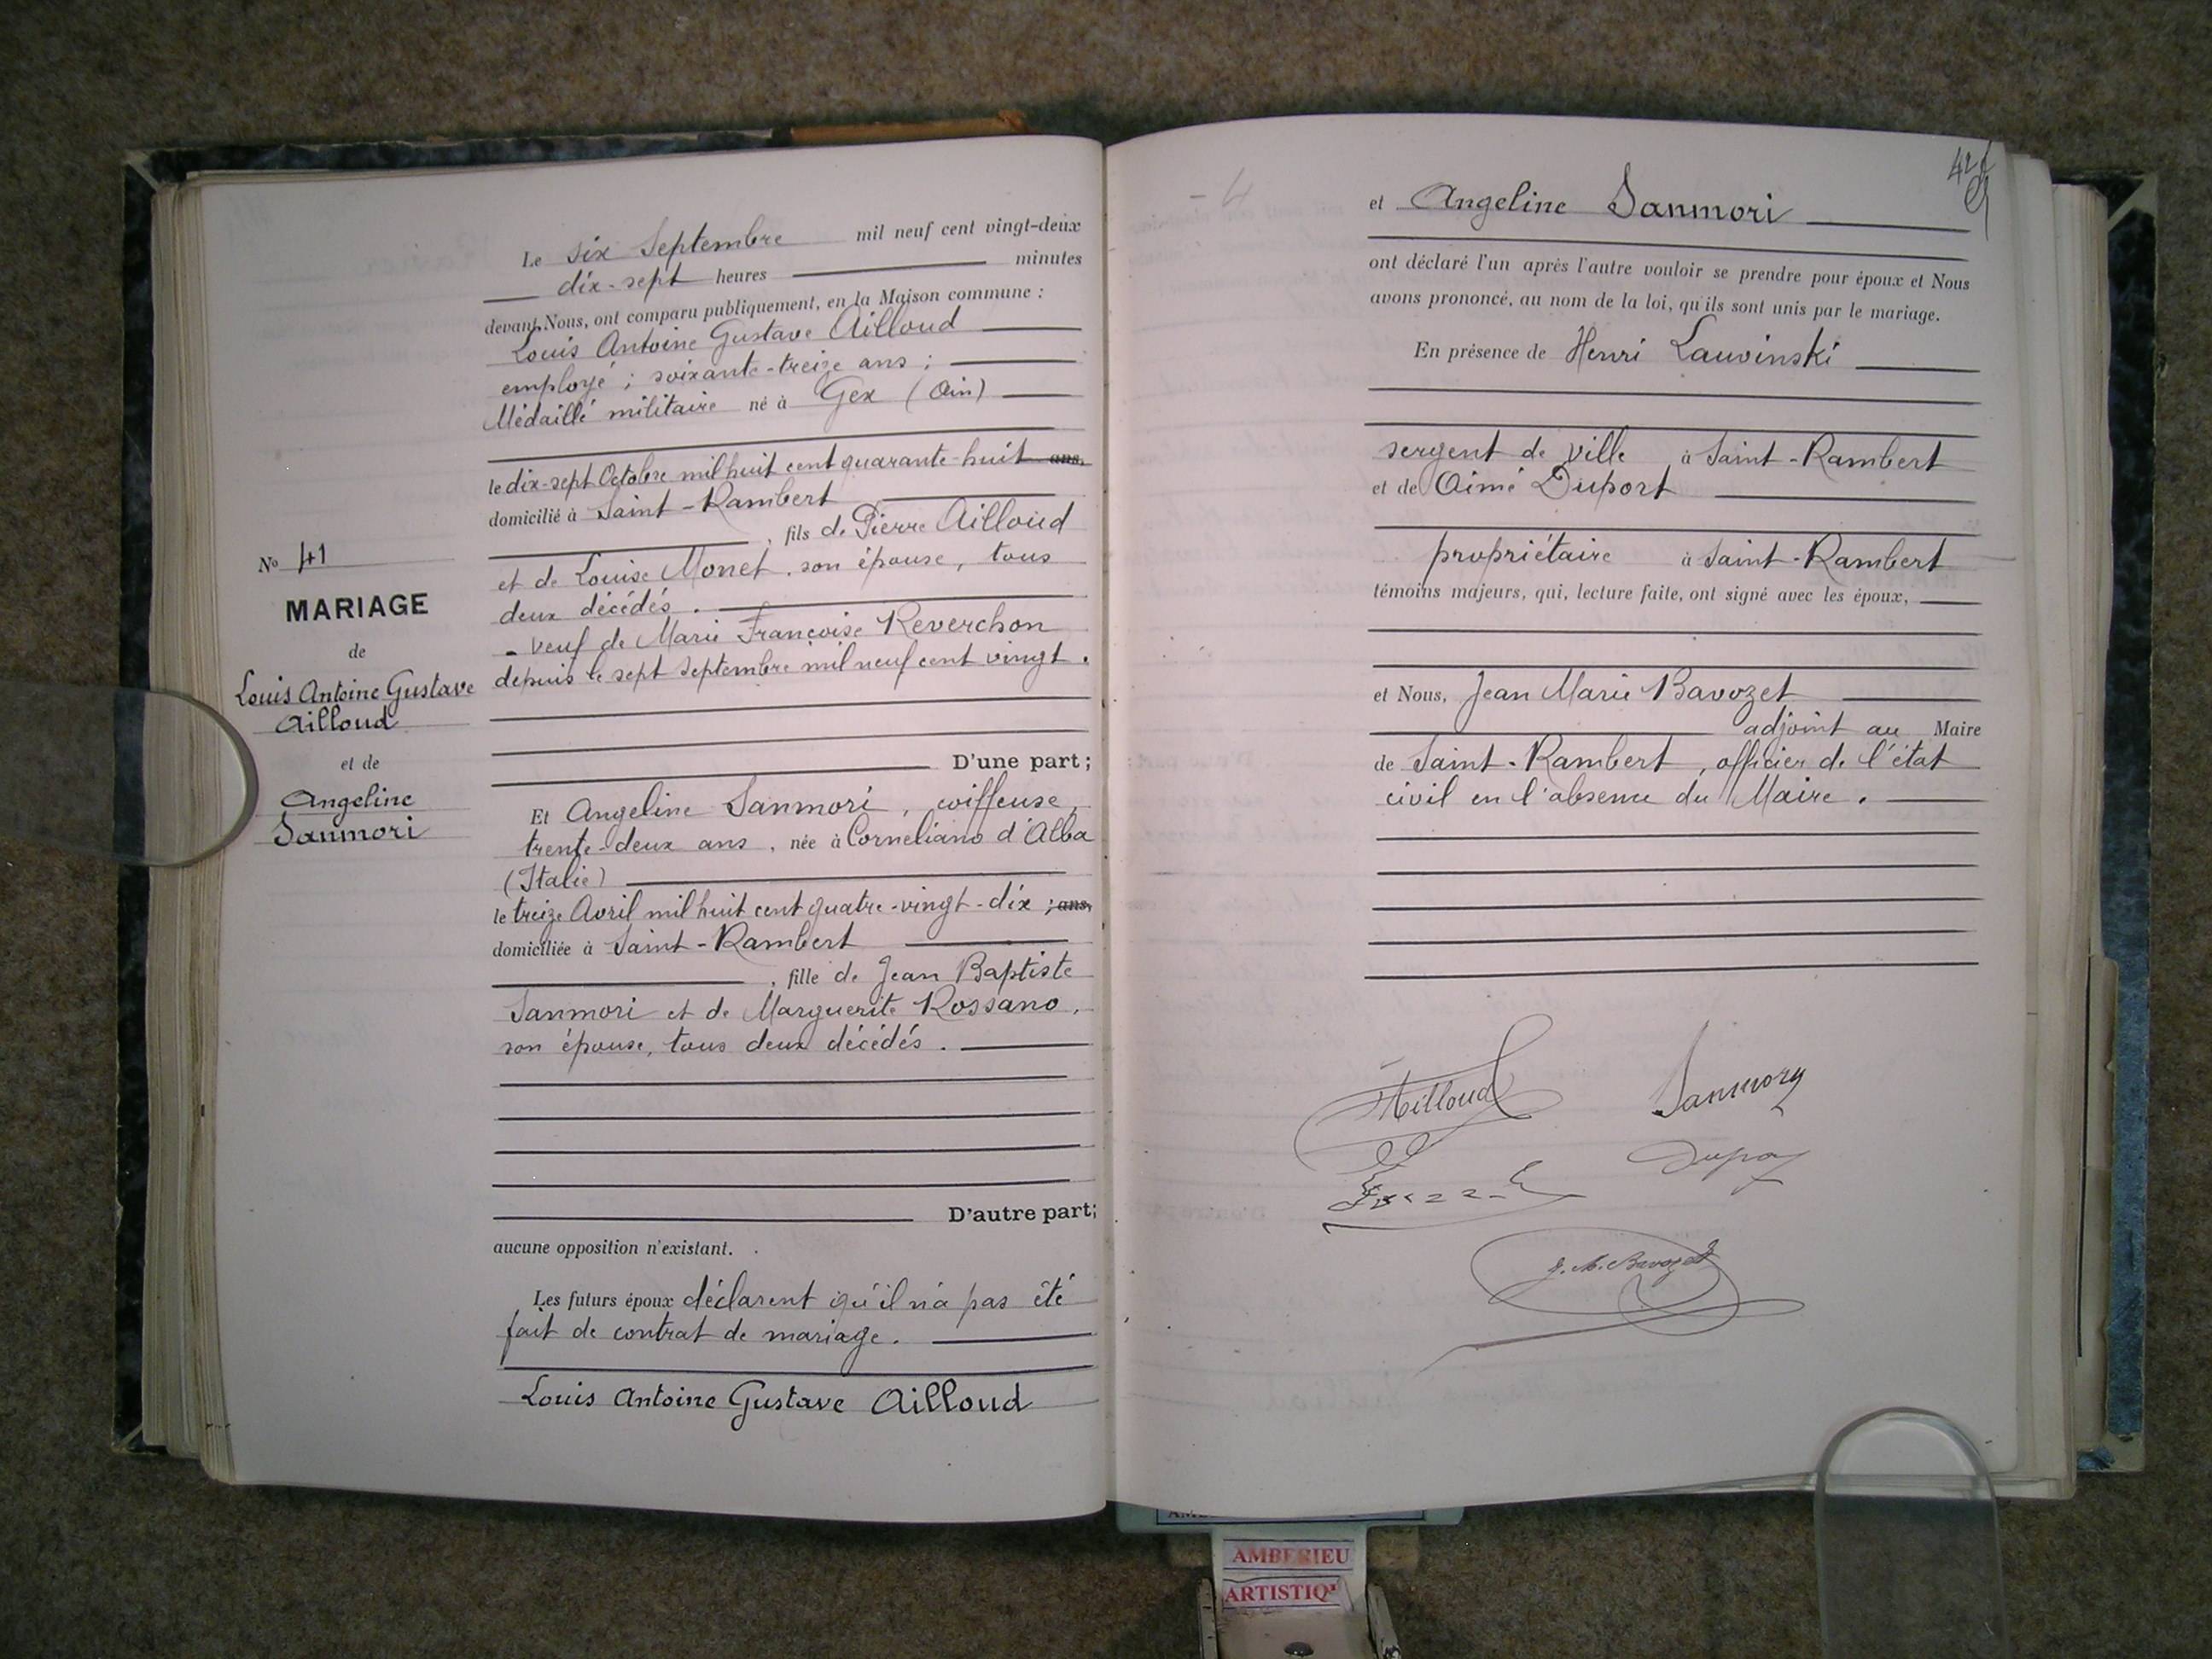 Le six Septembre mil neuf cent vingt-deux
dix-sept heures minutes
devant Nous, ont comparu publiquement, en la Maison commune :
Louis Antoine Gustave Ailloud
employé ; soixante-treize ans ;
Médaillé militaire né à Gex (Ain)
le dix-sept Octobre mil huit cent quarante-huit ans,
domicilié à Saint-Rambert
, fils de Pierre Ailloud
et de Louise Monet, son épouse, tous
deux décédés.
- veuf de Marie Françoise Reverchon
depuis le sept septembre mil neuf cent vingt.
D'une part ;
No 41
MARIAGE
de
Louis Antoine Gustave
Ailloud
et de
Angeline
Sanmori
Et Angeline Sanmori, coiffeuse,
trente-deux ans, née à Corneliano d'Alba
(Italie)
le treize Avril mil huit cent quatre-vingt-dix ; ans,
domiciliée à Saint-Rambert
, fille de Jean Baptiste
Sanmori et de Marguerite Rossano,
son épouse, tous deux décédés.
D'autre part;
aucune opposition n'existant.
Les futurs époux déclarent qu'il n'a pas été
fait de contrat de mariage.
Louis Antoine Gustave Ailloud
et Angeline Sanmori
ont déclaré l'un après l'autre vouloir se prendre pour époux et Nous
avons prononcé, au nom de la loi, qu'ils sont unis par le mariage.
En présence de Henri Lauvinski
sergent de ville à Saint-Rambert
et de Aimé Duport
propriétaire à Saint-Rambert
témoins majeurs, qui, lecture faite, ont signé avec les époux,
et Nous, Jean Marie Bavozet
adjoint au Maire
de Saint-Rambert, officier de l'état
civil en l'absence du Maire.
Ailloud
Sanmory
J. M. Bavozet
AMBERIEU
ARTISTIQ